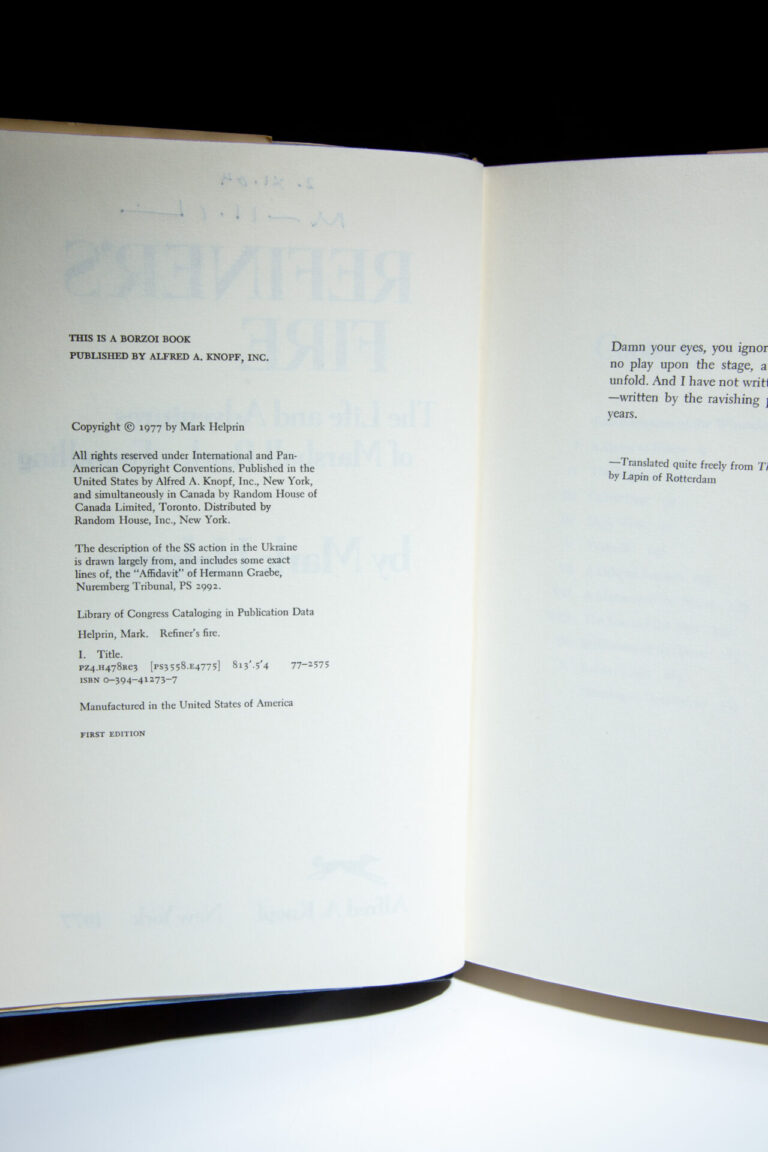 THIS IS A BORZOI BOOK
PUBLISHED BY ALFRED A. KNOPF, INC.
Copyright © 1977 by Mark Helprin
All rights reserved under International and Pan-
American Copyright Conventions. Published in the
United States by Alfred A. Knopf, Inc., New York,
and simultaneously in Canada by Random House of
Canada Limited, Toronto. Distributed by
Random House, Inc., New York.
The description of the SS action in the Ukraine
is drawn largely from, and includes some exact
lines of, the “Affidavit” of Hermann Graebe,
Nuremberg Tribunal, PS 2992.
Library of Congress Cataloging in Publication Data
Helprin, Mark. Refiner's fire.
I. Title.
PZ4.H478RC3 [PS3558.E4775] 813'.5'4 77-2575
ISBN 0-394-41273-7
Manufactured in the United States of America
FIRST EDITION
REFINER'S
FIRE
The Life and Adventures
of Marshall
by Mar
Alfred A. Knopf New York 1977
Damn your eyes, you ignor
no play upon the stage, a
unfold. And I have not writ
—written by the ravishing
years.
—Translated quite freely from
by Lapin of Rotterdam